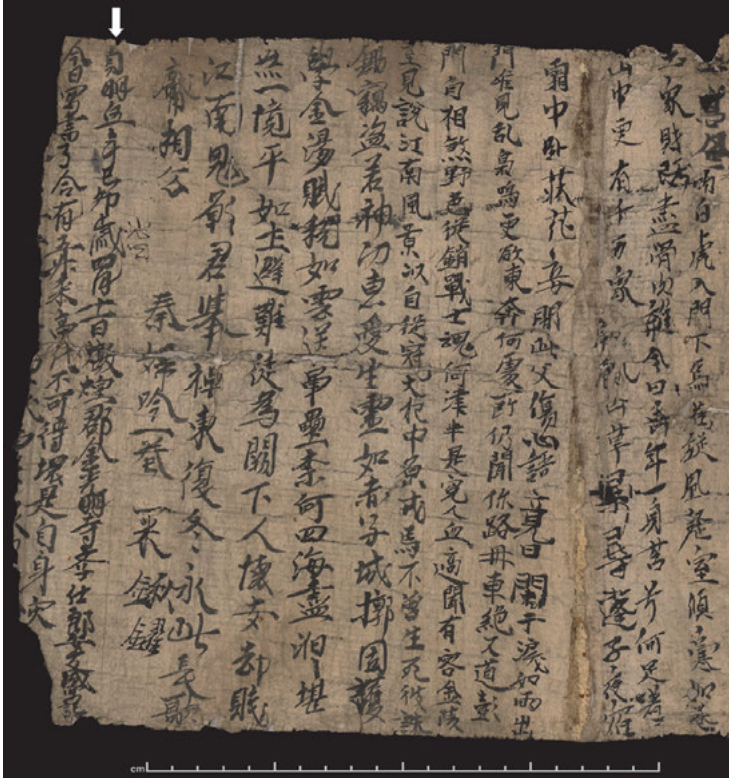 入門下馬若旋風罄室傾囊如卷
家財既盡骨肉離今日垂年一身苦兮何足嗟
山中更有千万家朝飢山草尋蓬子夜宿
霜中卧荻花妾聞此父傷心語竟日闌干淚如雨出
門唯見乱梟鳴更欲東奔何處所仍聞汴路舟車絕又道彭
門自相煞野色徒銷戰士魂河津半是冤人血適聞有客金陵
至見說江南風景以自從冠犯中原戎馬不曾生
鋤竊盜若神功惠愛生靈如赤子城壕固護
學金湯賦稅如雲送軍壘柰何四海盡滔々堪
然一境平如砥避難徒為闕下人懷安却賤
江南鬼願君舉棹東復冬永此長歌
獻相公
秦婦吟一卷
貞明伍年己卯歲四月十一日燉煌郡金光明寺學仕郎安友盛寫記
今日寫書了合有五升米高代不可得還是自身灾